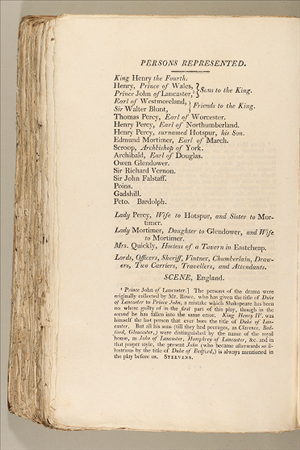 PERSONS REPRESENTED.
King Henry the Fourth.
Henry, Prince of Wales,
Prince John of Lancaster,¹
} Sons to the King.
Earl of Westmoreland,
Sir Walter Blunt,
} Friends to the King.
Thomas Percy, Earl of Worcester.
Henry Percy, Earl of Northumberland.
Henry Percy, surnamed Hotspur, his Son.
Edmund Mortimer, Earl of March.
Scroop, Archbishop of York.
Archibald, Earl of Douglas.
Owen Glendower.
Sir Richard Vernon.
Sir John Falstaff.
Poins.
Gadshill.
Peto. Bardolph.
Lady Percy, Wife to Hotspur, and Sister to Mor-
timer.
Lady Mortimer, Daughter to Glendower, and Wife
to Mortimer.
Mrs. Quickly, Hostess of a Tavern in Eastcheap.
Lords, Officers, Sheriff, Vintner, Chamberlain, Draw-
ers, Two Carriers, Travellers, and Attendants.
SCENE, England.
¹ Prince John of Lancaster.] The persons of the drama were
originally collected by Mr. Rowe, who has given the title of Duke
of Lancaster to Prince John, a mistake which Shakspeare has been
no where guilty of in the first part of this play, though in the
second he has fallen into the same error. King Henry IV. was
himself the last person that ever bore the title of Duke of Lan-
caster. But all his sons (till they had peerages, as Clarence, Bed-
ford, Gloucester,) were distinguished by the name of the royal
house, as John of Lancaster, Humphrey of Lancaster, &c. and in
that proper style, the present John (who became afterwards so il-
lustrious by the title of Duke of Bedford,) is always mentioned in
the play before us. STEEVENS.